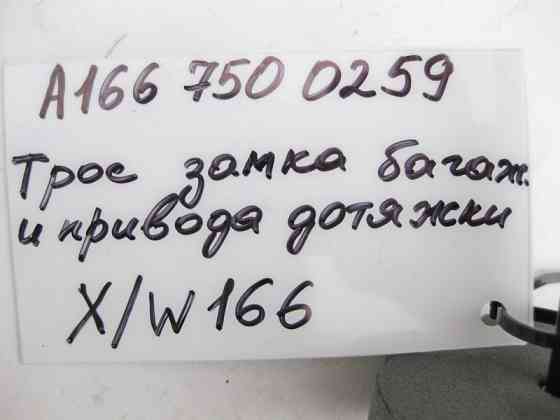 A166 750 0259
Трос замка багаж.
и привода дотяжки
X/W166